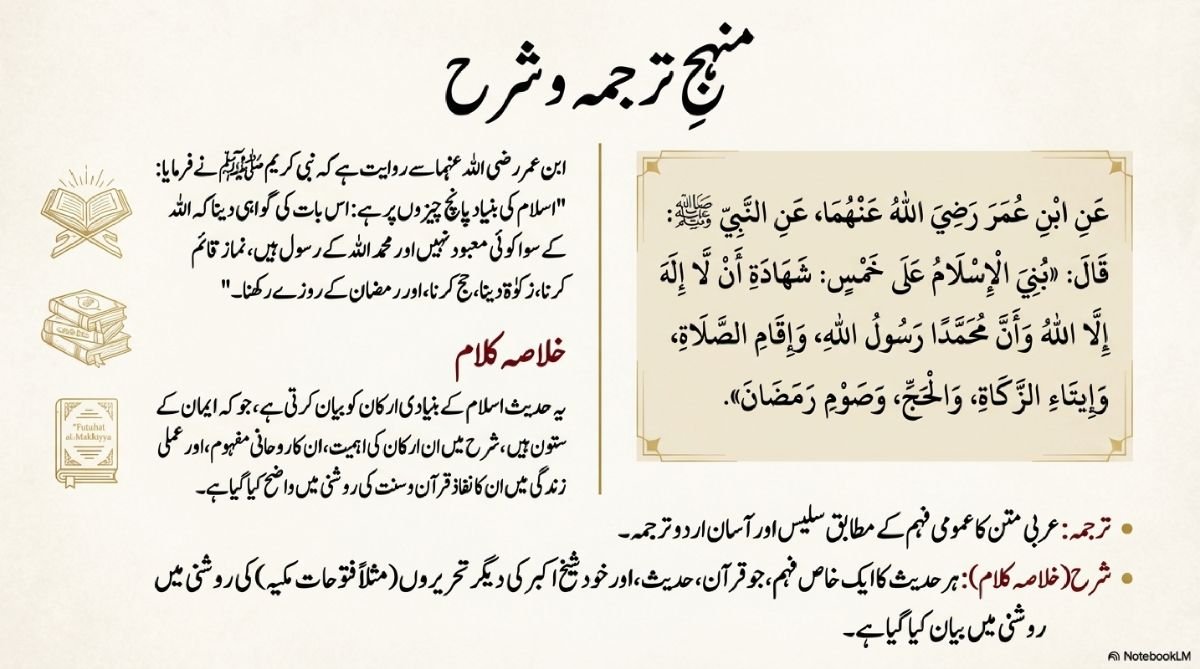 منہجِ ترجمہ و شرح
عَنِ ابْنِ عُمَرَ رَضِيَ اللهُ عَنْهُمَا، عَنِ النَّبِيِّ ﷺ:
قَالَ: «بُنِيَ الْإِسْلَامُ عَلَى خَمْسٍ: شَهَادَةِ أَنْ لَّا إِلَهَ
إِلَّا اللهُ وَأَنَّ مُحَمَّدًا رَسُولُ اللهِ، وَإِقَامِ الصَّلَاةِ،
وَإِيتَاءِ الزَّكَاةِ، وَالْحَجِّ، وَصَوْمِ رَمَضَانَ».
ابن عمر رضی اللہ عنہما سے روایت ہے کہ نبی کریم ﷺ نے فرمایا:
"اسلام کی بنیاد پانچ چیزوں پر ہے: اس بات کی گواہی دینا کہ اللہ
کے سوا کوئی معبود نہیں اور محمد اللہ کے رسول ہیں، نماز قائم
کرنا، زکوٰۃ دینا، حج کرنا، اور رمضان کے روزے رکھنا۔"
خلاصہ کلام
یہ حدیث اسلام کے بنیادی ارکان کو بیان کرتی ہے، جو کہ ایمان کے
ستون ہیں، شرح میں ان ارکان کی اہمیت، ان کا روحانی مفہوم، اور عملی
زندگی میں ان کا نفاذ قرآن و سنت کی روشنی میں واضح کیا گیا ہے۔
"Futuhat
al-Makkiyya
• ترجمہ: عربی متن کا عمومی فہم کے مطابق سلیس اور آسان اردو ترجمہ۔
• شرح (خلاصہ کلام): ہر حدیث کا ایک خاص فہم، جو قرآن، حدیث، اور خود شیخ اکبر کی دیگر تحریروں (مثلاً فتوحات مکیہ) کی روشنی میں
روشنی میں بیان کیا گیا ہے۔
NotebookLM